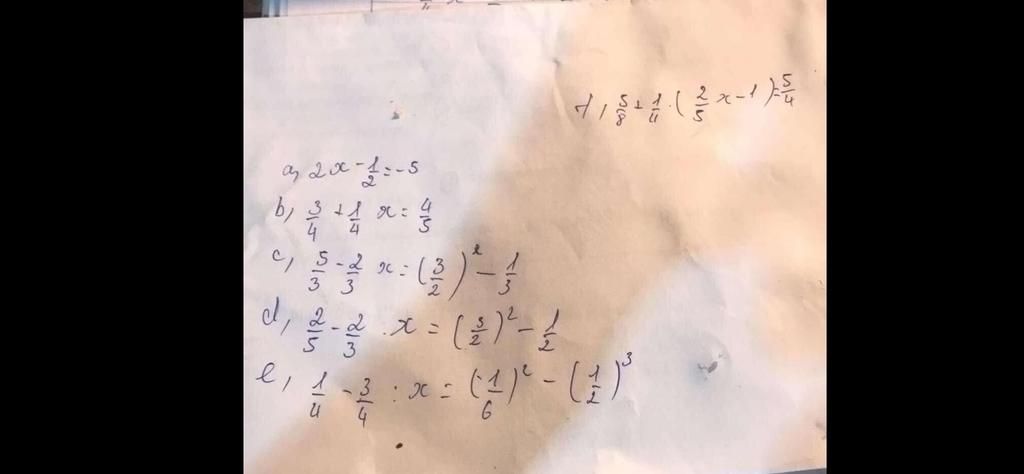 f, 5/8 + 1/4 . (2/5 x - 1) = 5/4
a, 2x - 1/2 = -5
b, 3/4 + 1/4 x = 4/5
c, 5/3 - 2/3 x = (3/2)² - 1/3
d, 2/5 - 2/3 . x = (3/2)² - 1/2
e, 1/4 - 3/4 : x = (-1/6)² - (1/2)³